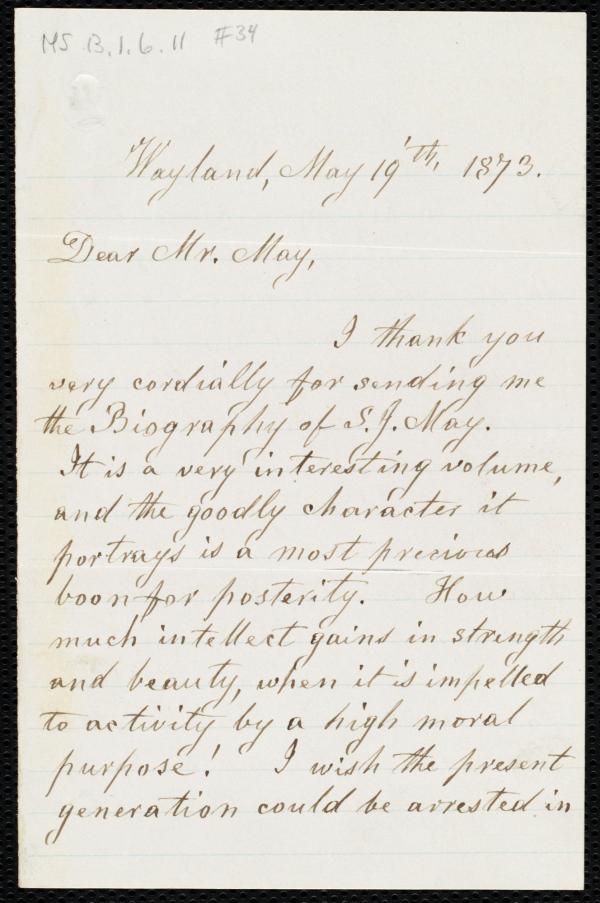 MS B.1.6.11 #34
Wayland, May 19'th, 1873.
Dear Mr. May,
I thank you
very cordially for sending me
the Biography of S. J. May.
It is a very interesting volume,
and the goodly character it
portrays is a most precious
boon for posterity. How
much intellect gains in strength
and beauty, when it is impelled
to activity by a high moral
purpose! I wish the present
generation could be arrested in